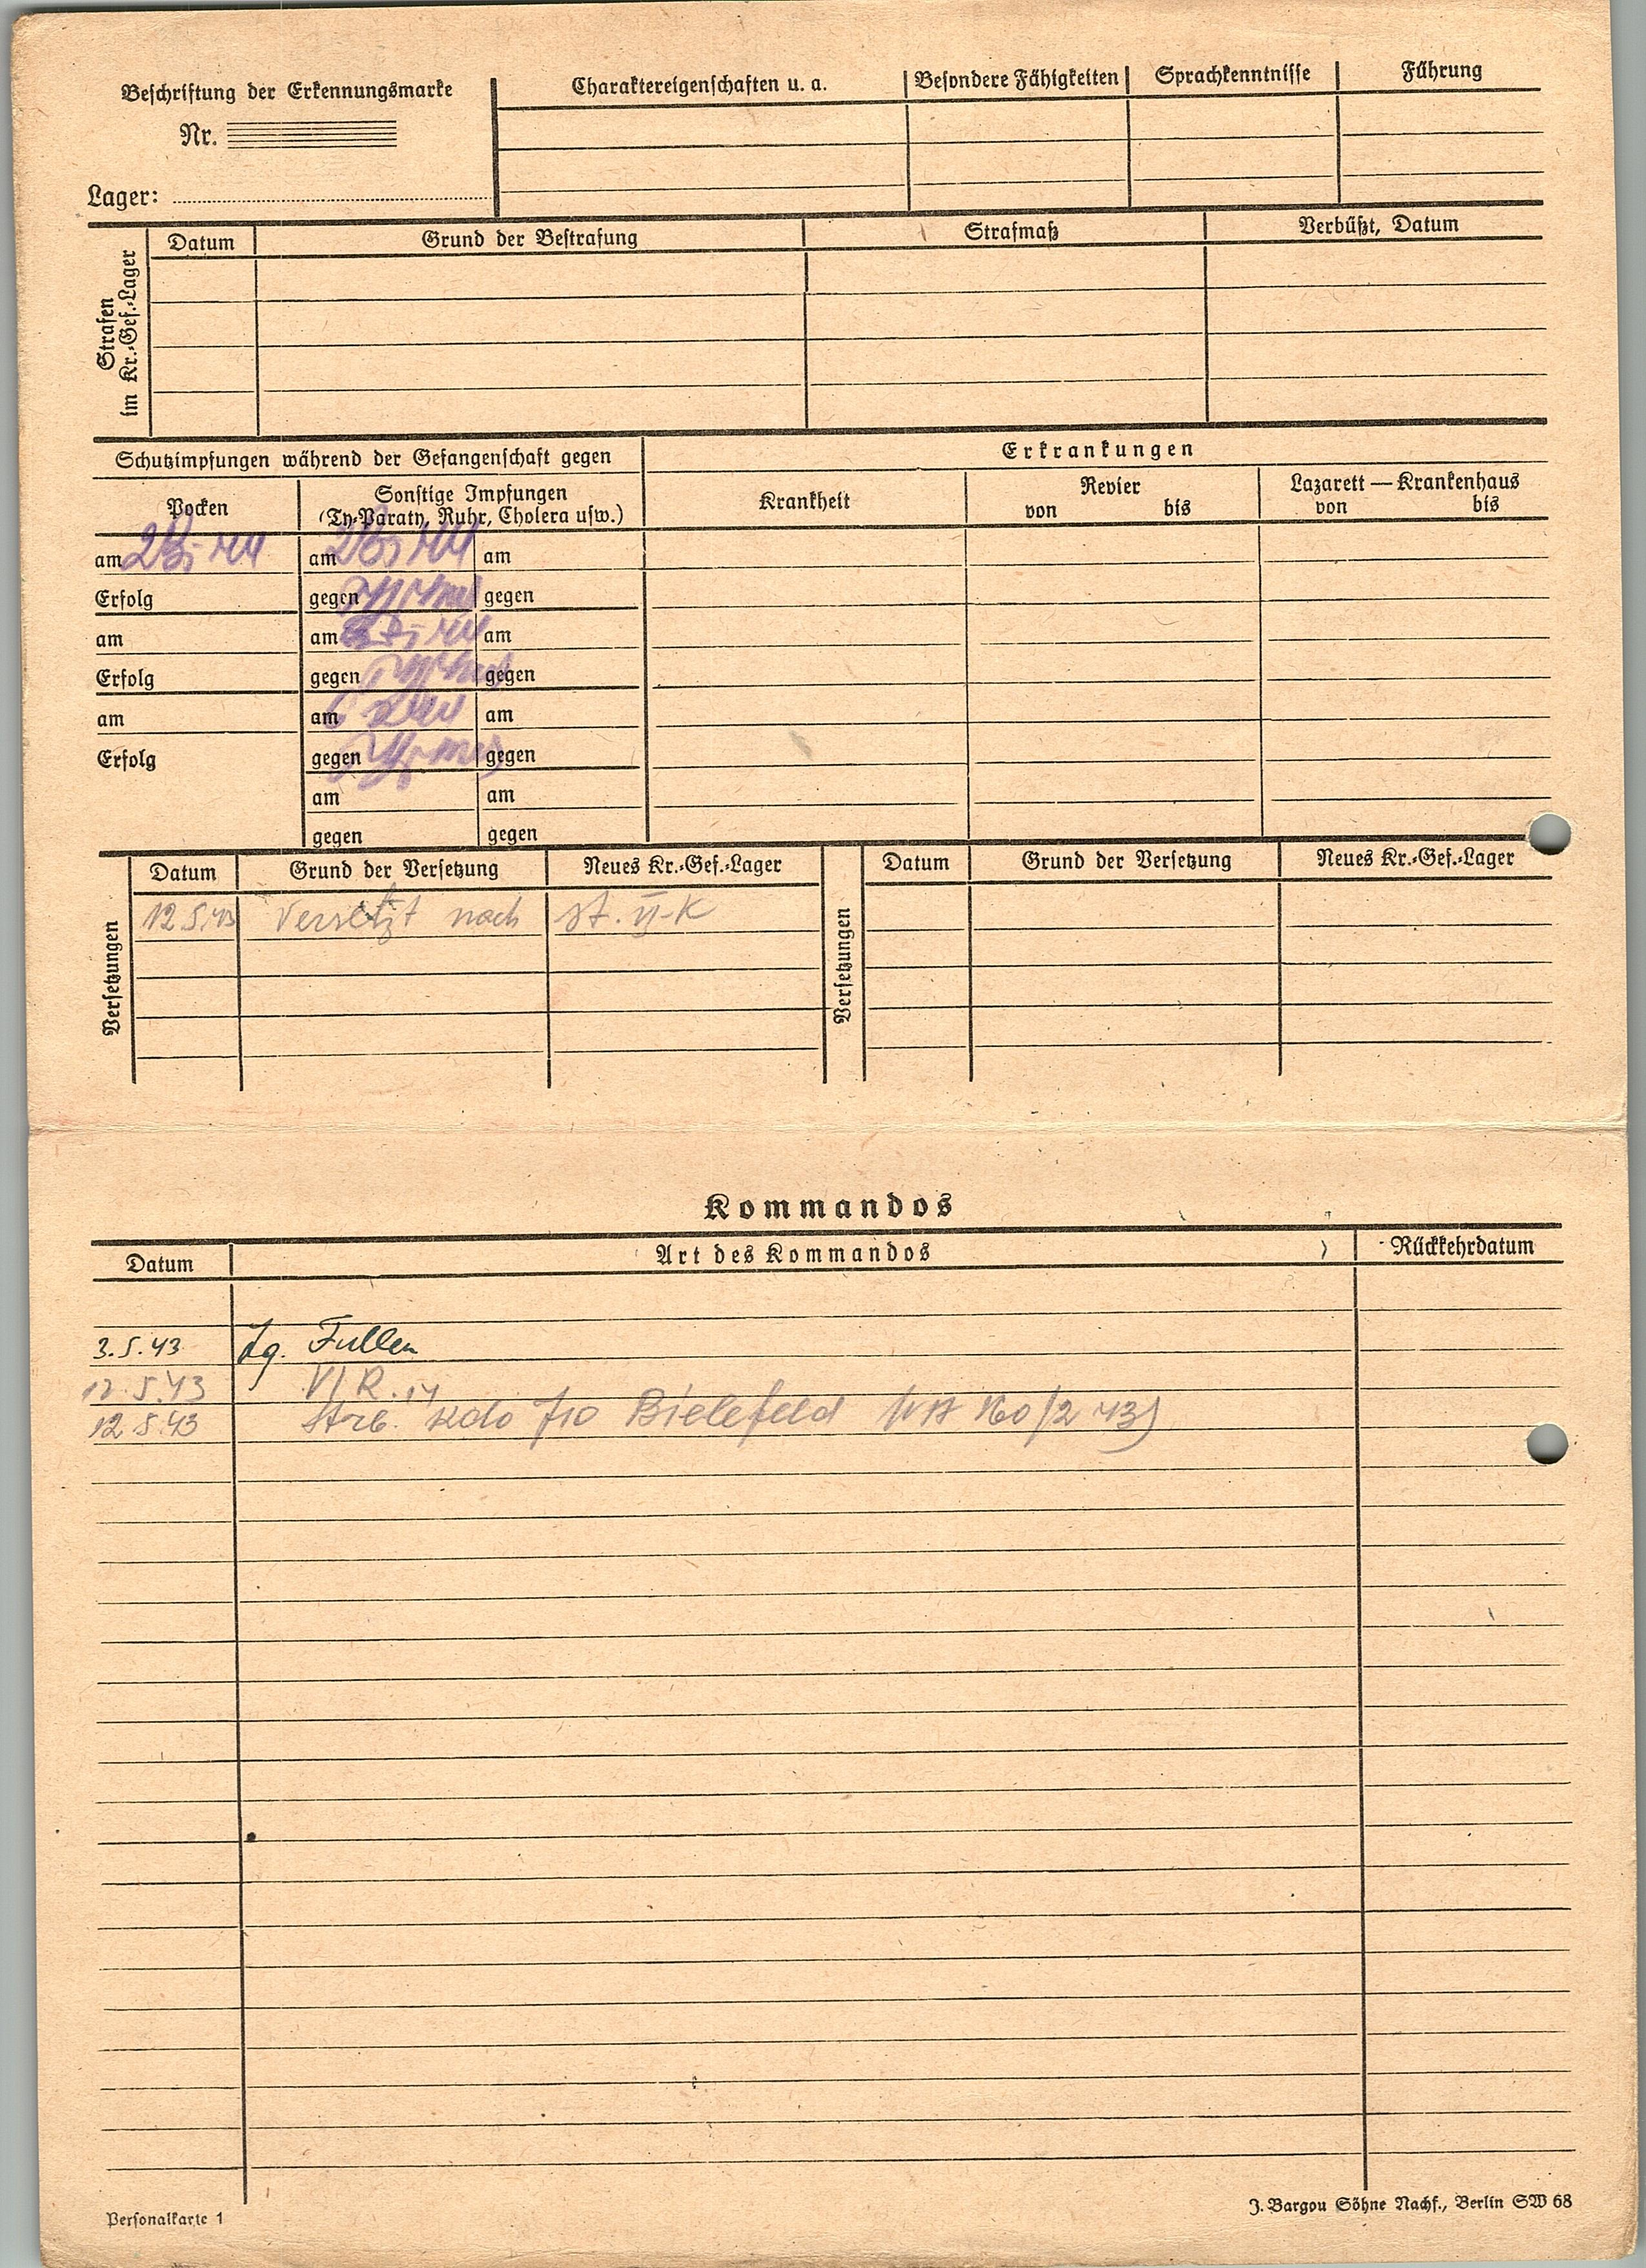 Beschriftung der Erkennungsmarke
Nr.
Lager:
Charaktereigenschaften u. a.
Besondere Fähigkeiten
Sprachkenntnisse
Führung
Strafen
im Kr.-Gef.-Lager
Datum
Grund der Bestrafung
Strafmaß
Verbüßt, Datum
Schutzimpfungen während der Gefangenschaft gegen
Erkrankungen
Pocken
Sonstige Impfungen
(Ty-Paraty, Ruhr, Cholera usw.)
Krankheit
Revier
von bis
Lazarett — Krankenhaus
von bis
am am am
Erfolg gegen gegen
am am am
Erfolg gegen gegen
am am am
Erfolg gegen gegen
am am
gegen gegen
Versetzungen
Datum Grund der Versetzung Neues Kr.-Gef.-Lager
12.5.43 Versetzt nach St. VI-K
Versetzungen
Datum Grund der Versetzung Neues Kr.-Gef.-Lager
Kommandos
Datum Art des Kommandos Rückkehrdatum
3.5.43 Lg. Fullen
12.5.43
12.5.43 Kdo Bielefeld
Personalkarte 1
J. Bargou Söhne Nachf., Berlin SW 68